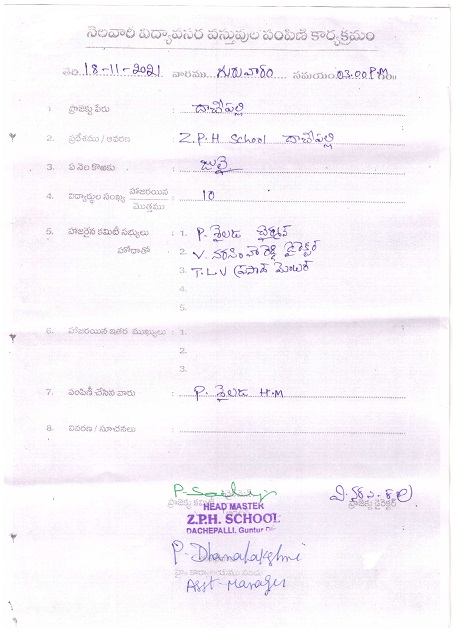 నెలవారీ విద్యావసర వస్తువుల పంపిణీ కార్యక్రమం
తేది 18-11-2021 వారము గురువారం సమయం 03.00 P.M గం॥
1. ప్రాజెక్టు పేరు : దాచేపల్లి
2. ప్రదేశము / ఆవరణ : Z.P.H School దాచేపల్లి
3. ఏ నెల కొఱకు : జులై
4. విద్యార్థుల సంఖ్య హాజరయిన : 10
మొత్తము
5. హాజరైన కమిటీ సభ్యులు : 1. P. శైలజ చైర్మన్
హోదాతో 2. V. నరసింహారెడ్డి డైరెక్టర్
3. T.L.V ప్రసాద్ మెంబర్
4.
5.
6. హాజరయిన ఇతర ముఖ్యులు : 1.
2.
3.
7. పంపిణీ చేసిన వారు : P. శైలజ H.M
8. వివరణ / సూచనలు :
ప్రాజెక్టు కమిటీ ప్రాజెక్టు డైరెక్టర్
HEAD MASTER
Z.P.H. SCHOOL
DACHEPALLI, Guntur
P. Dhanalakshmi
Asst-Manager